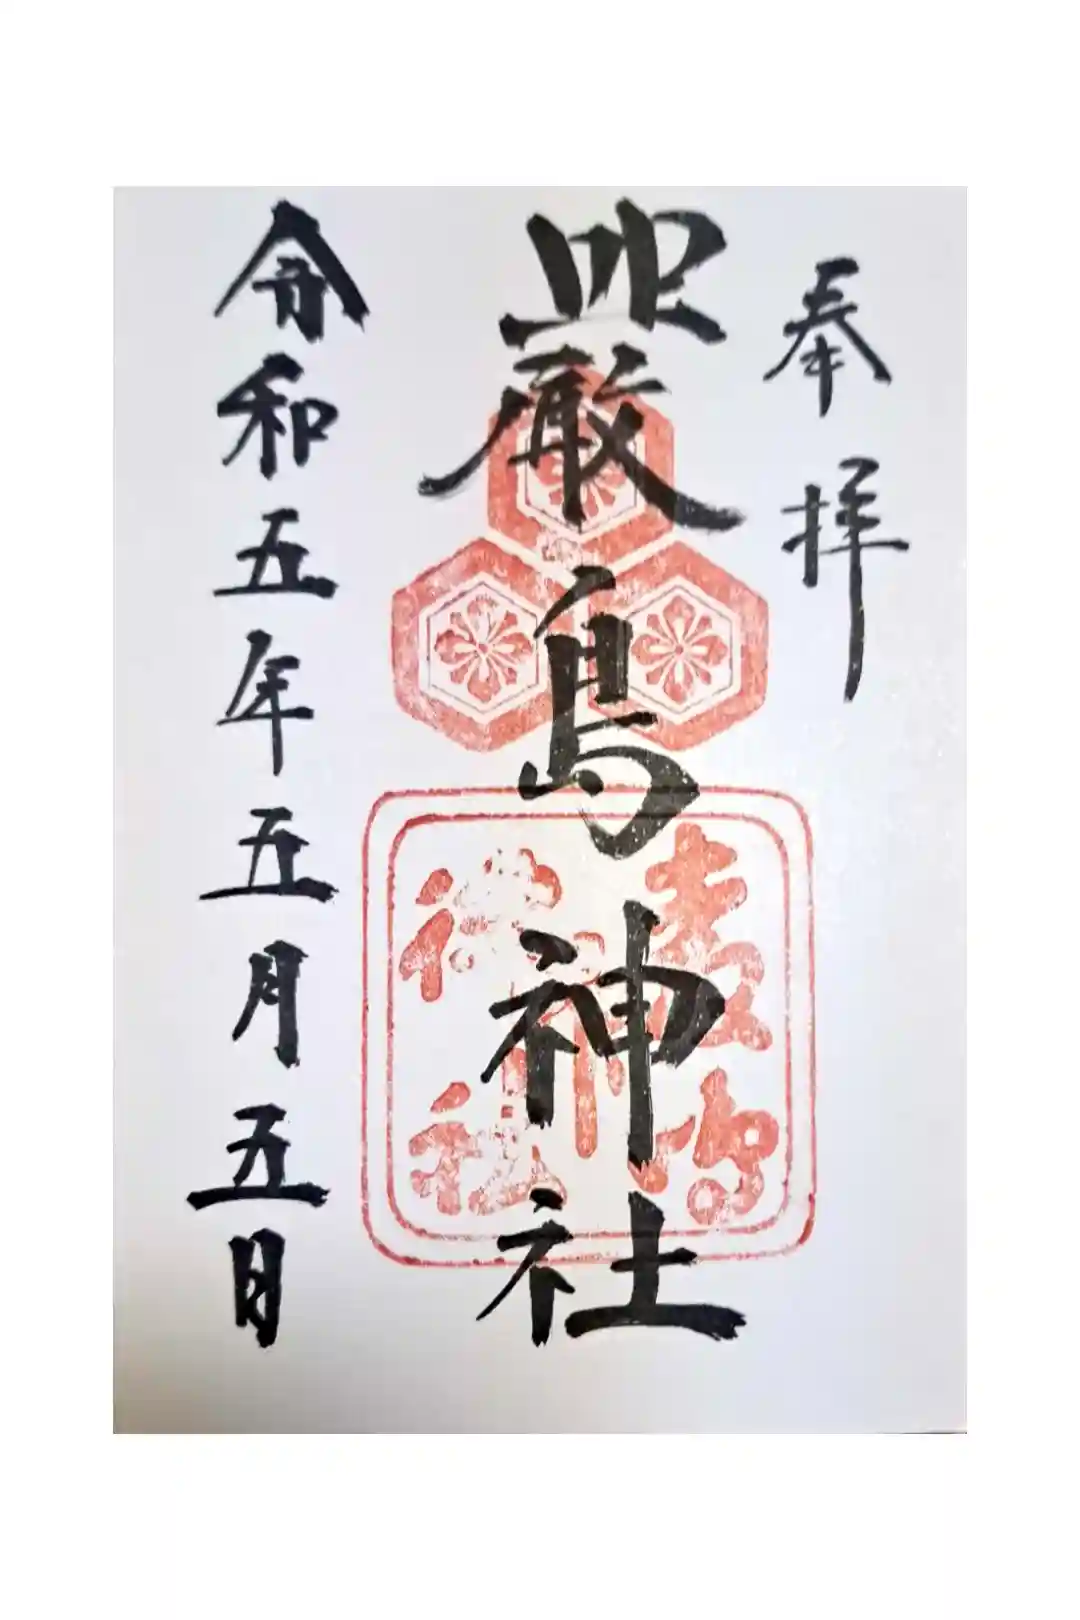 奉拝
嚴島神社
令和五年五月五日